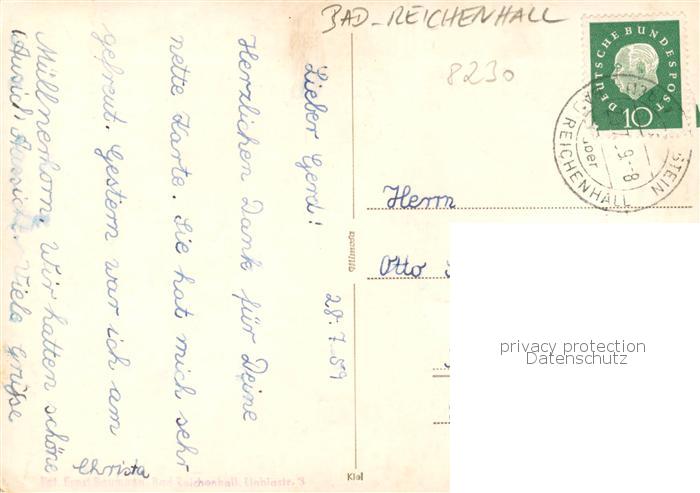 BAD-REICHENHALL
8230
DEUTSCHE BUNDESPOST
10
über
REICHENHALL
STEIN
28.7.59
Lieber Gerd!
Herzlichen Dank für Deine
nette Karte. Sie hat mich sehr
gefreut. Gestern war ich am
Müllnerhorn. Wir hatten schöne
Aussicht. Viele Grüße
Christa
Herrn
Otto
privacy protection
Datenschutz
Bad Reichenhall
Kiol